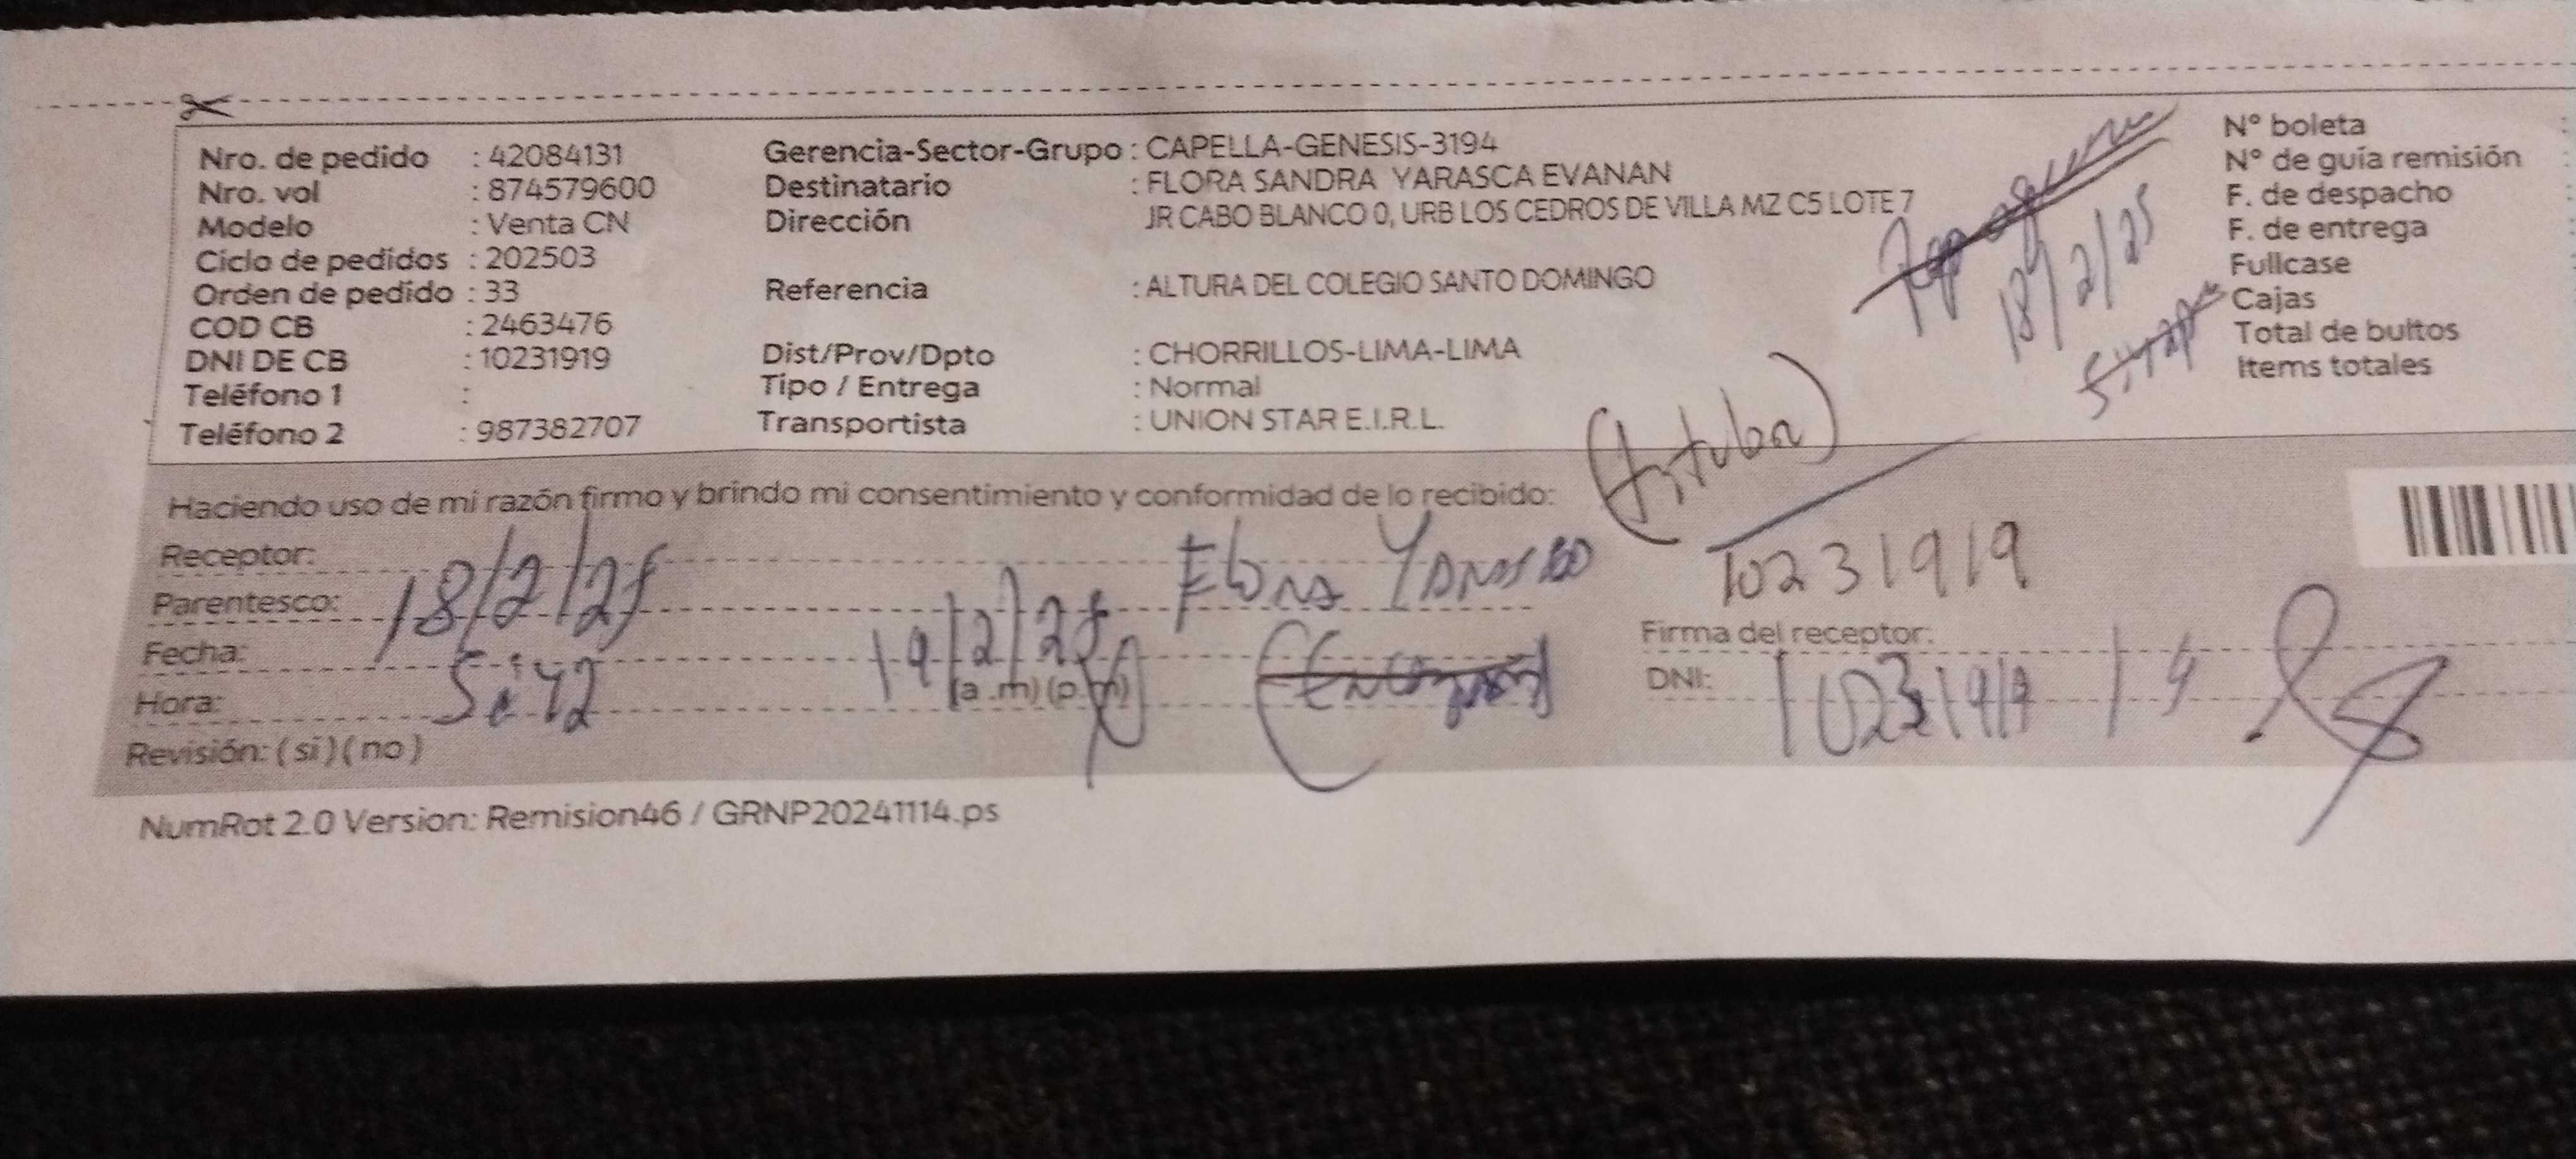 Nro. de pedido : 42084131
Nro. vol : 874579600
Modelo : Venta CN
Ciclo de pedidos : 202503
Orden de pedido : 33
COD CB : 2463476
DNI DE CB : 10231919
Teléfono 1 :
Teléfono 2 : 987382707
Gerencia-Sector-Grupo : CAPELLA-GENESIS-3194
Destinatario : FLORA SANDRA YARASCA EVANAN
Dirección JR CABO BLANCO 0, URB LOS CEDROS DE VILLA MZ C5 LOTE 7
Referencia : ALTURA DEL COLEGIO SANTO DOMINGO
Dist/Prov/Dpto : CHORRILLOS-LIMA-LIMA
Tipo / Entrega : Normal
Transportista : UNION STAR E.I.R.L.
18/2/25
N° boleta
N° de guía remisión
F. de despacho
F. de entrega
Fullcase
Cajas
Total de bultos
Items totales
Haciendo uso de mi razón firmo y brindo mi consentimiento y conformidad de lo recibido:
Receptor: Flora
10231919
Parentesco: 18/2/25
Fecha: 19/2/25
Hora: 5:42 (a.m) (p.m)
Revisión: (si) (no)
Firma del receptor:
DNI:
NumRot 2.0 Version: Remision46 / GRNP20241114.ps